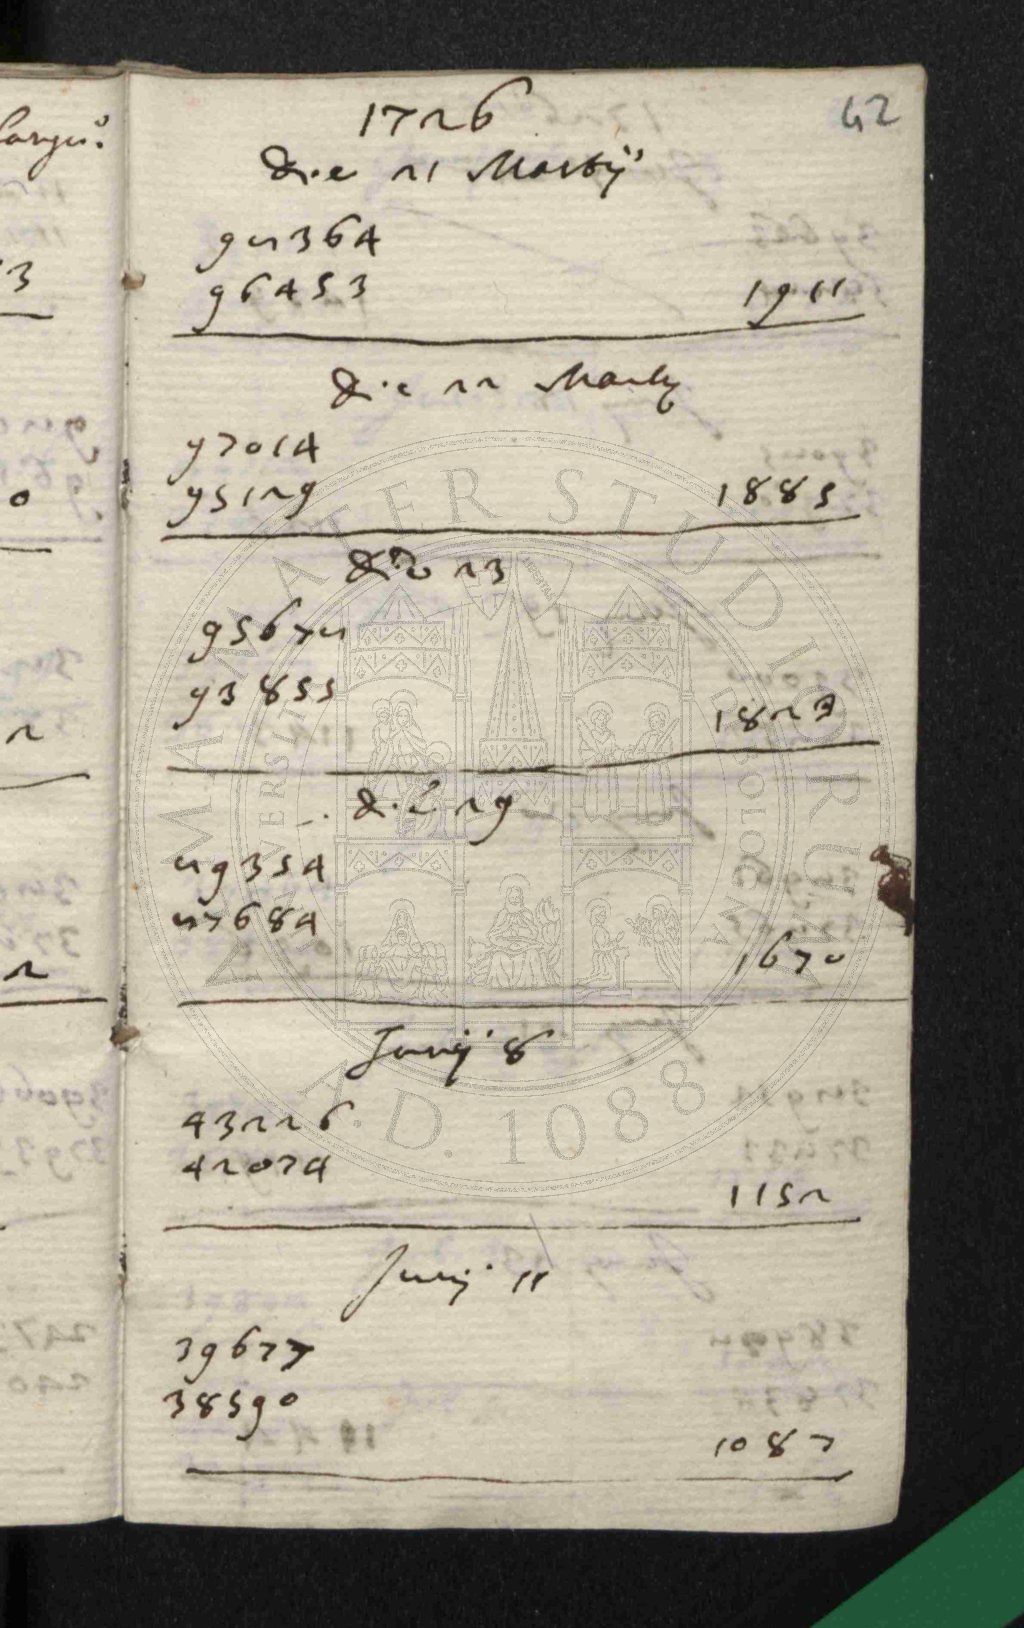 42
1726
Die 21 Martij
98364
96453 1911
Die 22 Martij
97014
95129 1885
Die 23
95678
93855
1823
Die 29
89354
87684
1670
Junij 8
43226
42074
1152
Junij 11
39677
38590
1087
3
0
2
2
ALMA MATER STUDIORUM
A.D. 1088